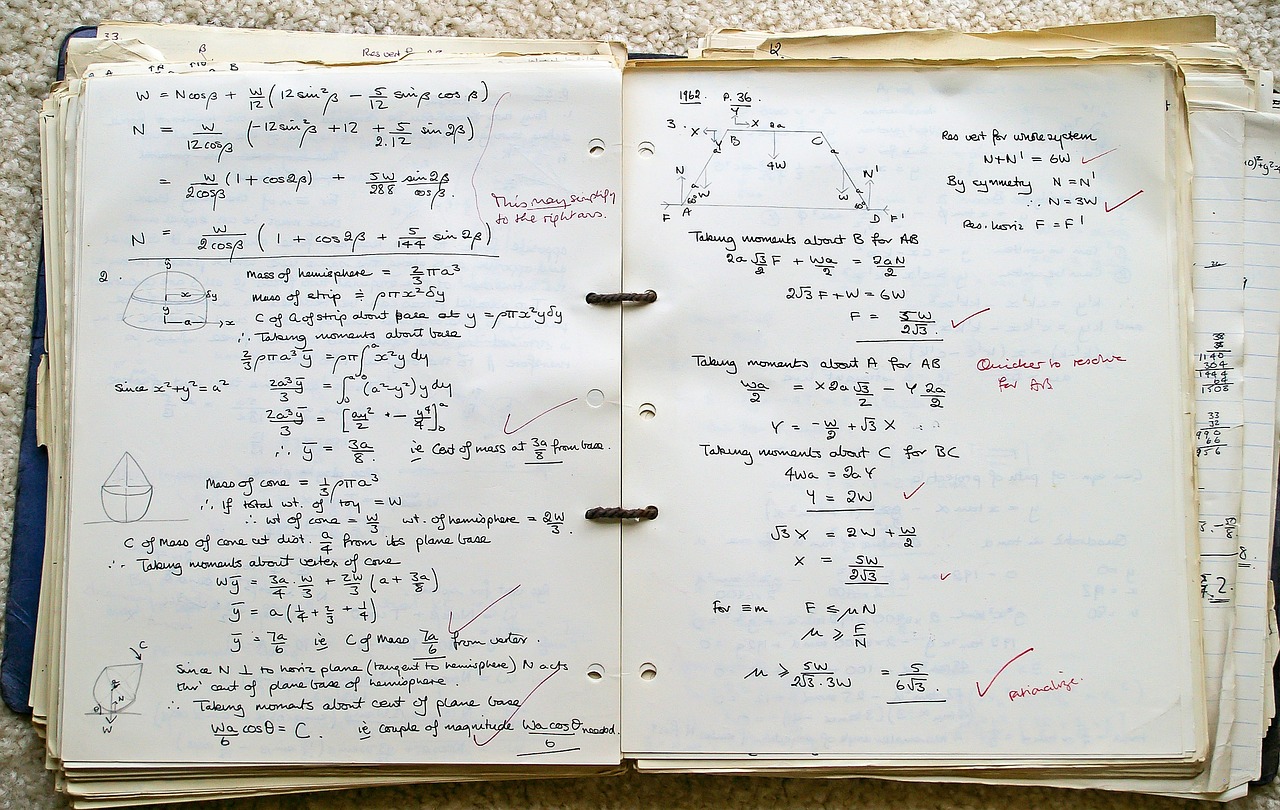 33.
β
Res vert
A B
W = N cosβ + W/12 (12 sin²β − 5/12 sinβ cosβ)
N = W/12cosβ (−12 sin²β + 12 + 5/2.12 sin 2β)
= W/2cosβ (1 + cos2β) + 5W/288 sin2β/cosβ.
This may simplify
to the right ans.
N = W/2cosβ (1 + cos 2β + 5/144 sin 2β)
2.
y
x δy
y
a x
Mass of hemisphere = 2/3 πa³
Mass of strip ≡ ρπx²δy
C of G of strip about base at y = ρπx²yδy
∴ Taking moments about base
2/3 ρπa³ȳ = ρπ∫₀ᵃ x²y dy
Since x²+y²=a² 2a³ȳ/3 = ∫₀ᵃ (a²−y²) y dy
2a³ȳ/3 = [ay²/2 − y⁴/4]₀ᵃ
∴ ȳ = 3a/8 ie Cent of mass at 3a/8 from base.
Mass of cone = 1/3 ρπa³
∴ If total wt. of toy = W
∴ wt of cone = W/3 wt. of hemisphere = 2W/3.
C of Mass of cone at dist. a/4 from its plane base
∴ Taking moments about vertex of cone
Wȳ = 3a/4 · W/3 + 2W/3 (a + 3a/8)
ȳ = a(1/4 + 2/3 + 1/4)
ȳ = 7a/6 ie C of Mass 7a/6 from vertex.
C
N
θ
W
Since N ⊥ to horiz plane (tangent to hemisphere) N acts
thro' cent of plane base of hemisphere.
∴ Taking moments about cent of plane base
Wa/6 cosθ = C. ie couple of magnitude Wa cosθ/6 needed.
62.
1962. P. 36.
3.
Y
X X 2a
Y B C
a a
4W
N N'
a a
W W
60° 60°
F A D F'
Res vert for whole system
N+N' = 6W
By symmetry N = N'
∴ N = 3W
Res. horiz F = F'
Taking moments about B for AB
2a √3/2 F + Wa/2 = 2aN/2
2√3 F + W = 6W
F = 5W/2√3.
Taking moments about A for AB
Quicker to resolve
for AB
Wa/2 = X 2a √3/2 − Y 2a/2
Y = −W/2 + √3 X
Taking moments about C for BC
4Wa = 2aY
Y = 2W
√3 X = 2W + W/2
X = 5W/2√3
For ≡m F ≤ μN
μ ≥ F/N
μ ≥ 5W/2√3.3W = 5/6√3.
rationalize.
38
38
1140
304
1444
64
1508
33
32
990
66
956